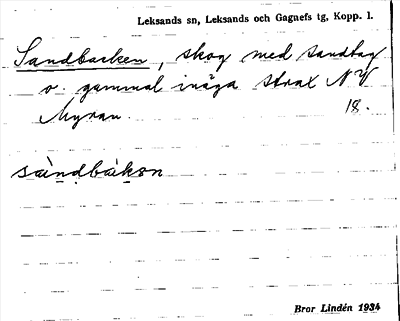 Leksands sn, Leksands och Gagnefs tg, Kopp. l.
Sandbacken, skog med sandtag
o. gammal inäga strax N V
Myran. 18.
sàndbàkən
Bror Lindén 1934